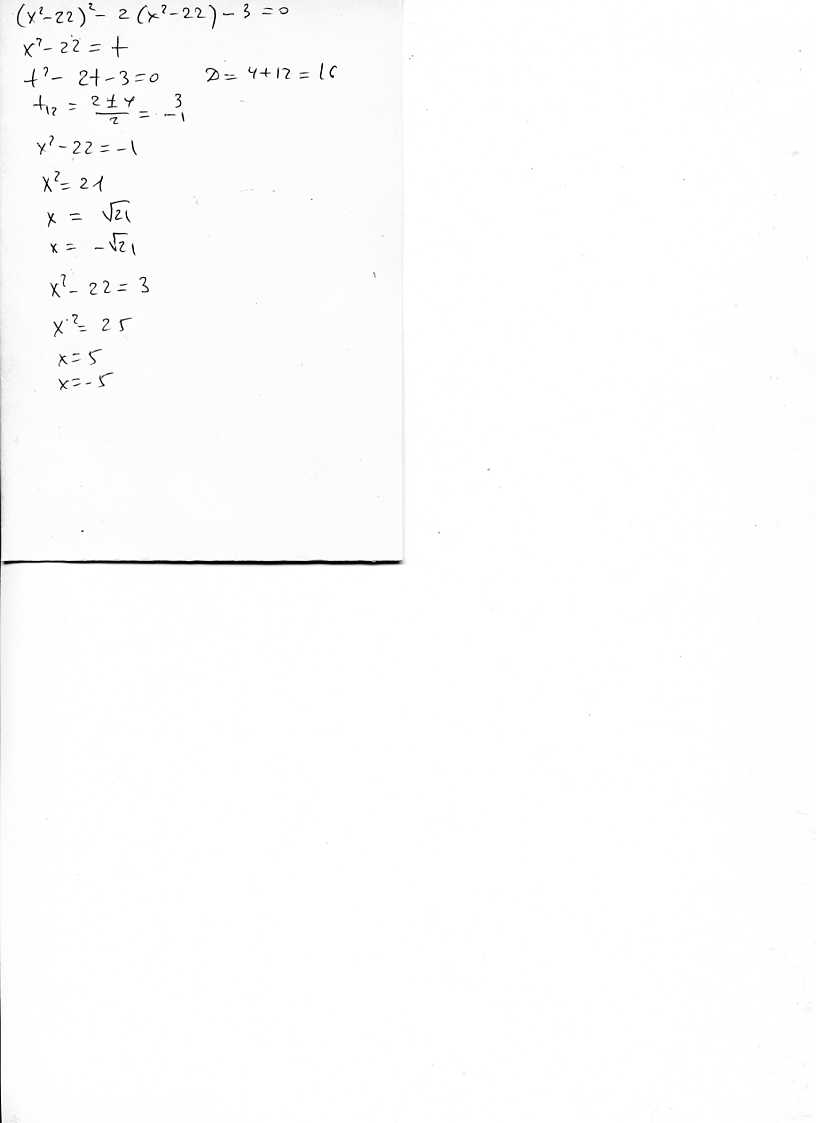 (x²-22)² - 2(x²-22) - 3 = 0
x² - 22 = t
t² - 2t - 3 = 0 D = 4+12 = 16
t₁₂ = (2 ± 4)/2 = 3 -1
x² - 22 = -1
x² = 21
x = √21
x = -√21
x² - 22 = 3
x² = 25
x = 5
x = -5